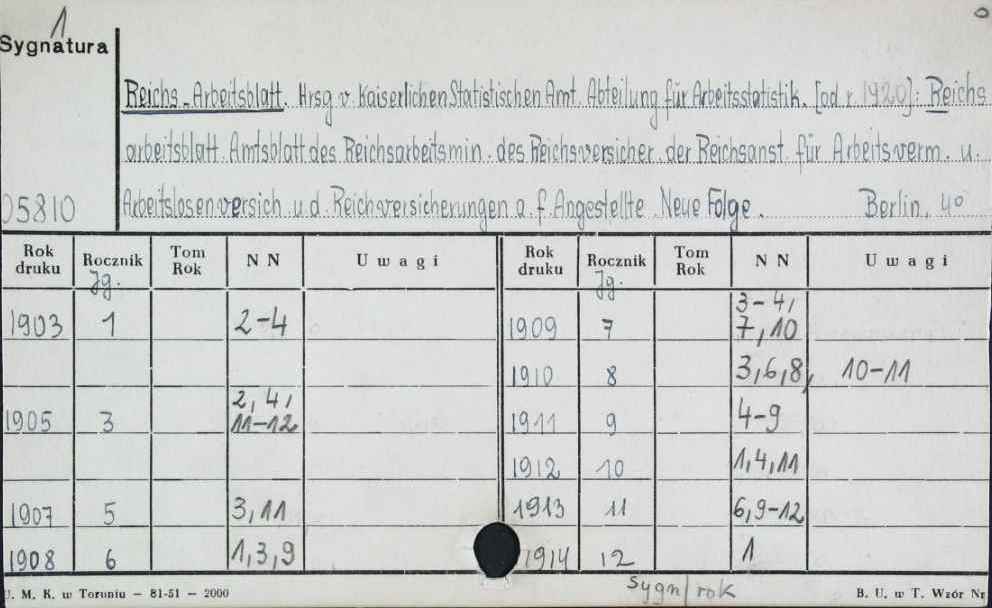 1
Sygnatura
Reichs-Arbeitsblatt. Hrsg v. Kaiserlichen Statistischen Amt. Abteilung für Arbeitsstatistik. [od r. 1920]: Reichs
arbeitsblatt. Amtsblatt des Reichsarbeitsmin. des Reichsversicher. der Reichsanst. für Arbeitsverm. u.
05810 Arbeitslosenversich. u. d. Reichversicherungen a. f. Angestellte. Neue Folge. Berlin, 4º
Rok druku Rocznik Tom Rok N N Uwagi Rok druku Rocznik Tom Rok N N Uwagi
Jg. Jg.
1903 1 2-4 1909 7 3-4, 7, 10
1910 8 3,6,8, 10-11
1905 3 2, 4, 11-12 1911 9 4-9
1912 10 1,4,11
1907 5 3,11 1913 11 6,9-12
1908 6 1,3,9 1914 12 1
sygn/rok
U. M. K. w Toruniu – 81-51 – 2000 B. U. w T. Wzór Nr